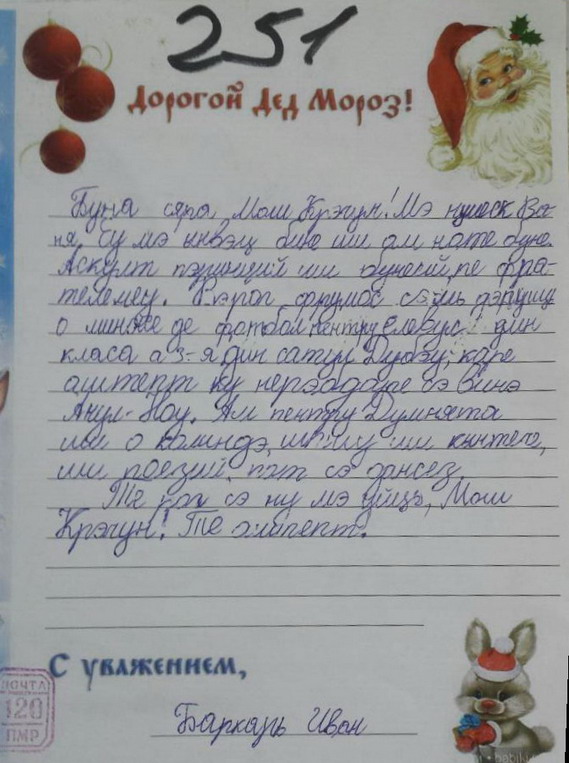 251
Дорогой Дед Мороз!
Буна сяра Мош Крэчун! Мэ нумеск Ва-
ня. Еу мэ ынвэц бине ши ам ноте буне.
Аскулт пэринций ши бунеий, пе фра-
теле меу. Те рог фрумос сэ-мь дэруешь
о минӂе де фотбал пентру елевул дин
класа а 3-я дин сатул Дубэу, каре
аштепт ку нерэбдаре сэ винэ
Анул-Ноу. Ам пентру Думнята
ши о колиндэ, ши ши кынтече,
ши поезий. пот сэ дансез
Те рог сэ ну мэ уйць, Мош
Крэчун! Те аштепт.
С уважением,
Баркарь Иван
ПОЧТА
120
ПМР